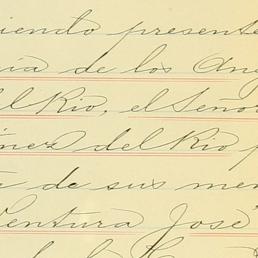 iendo presente
ía de los Ang
del Rio, el Señor
ínez del Rio
de sus me
Ventura José